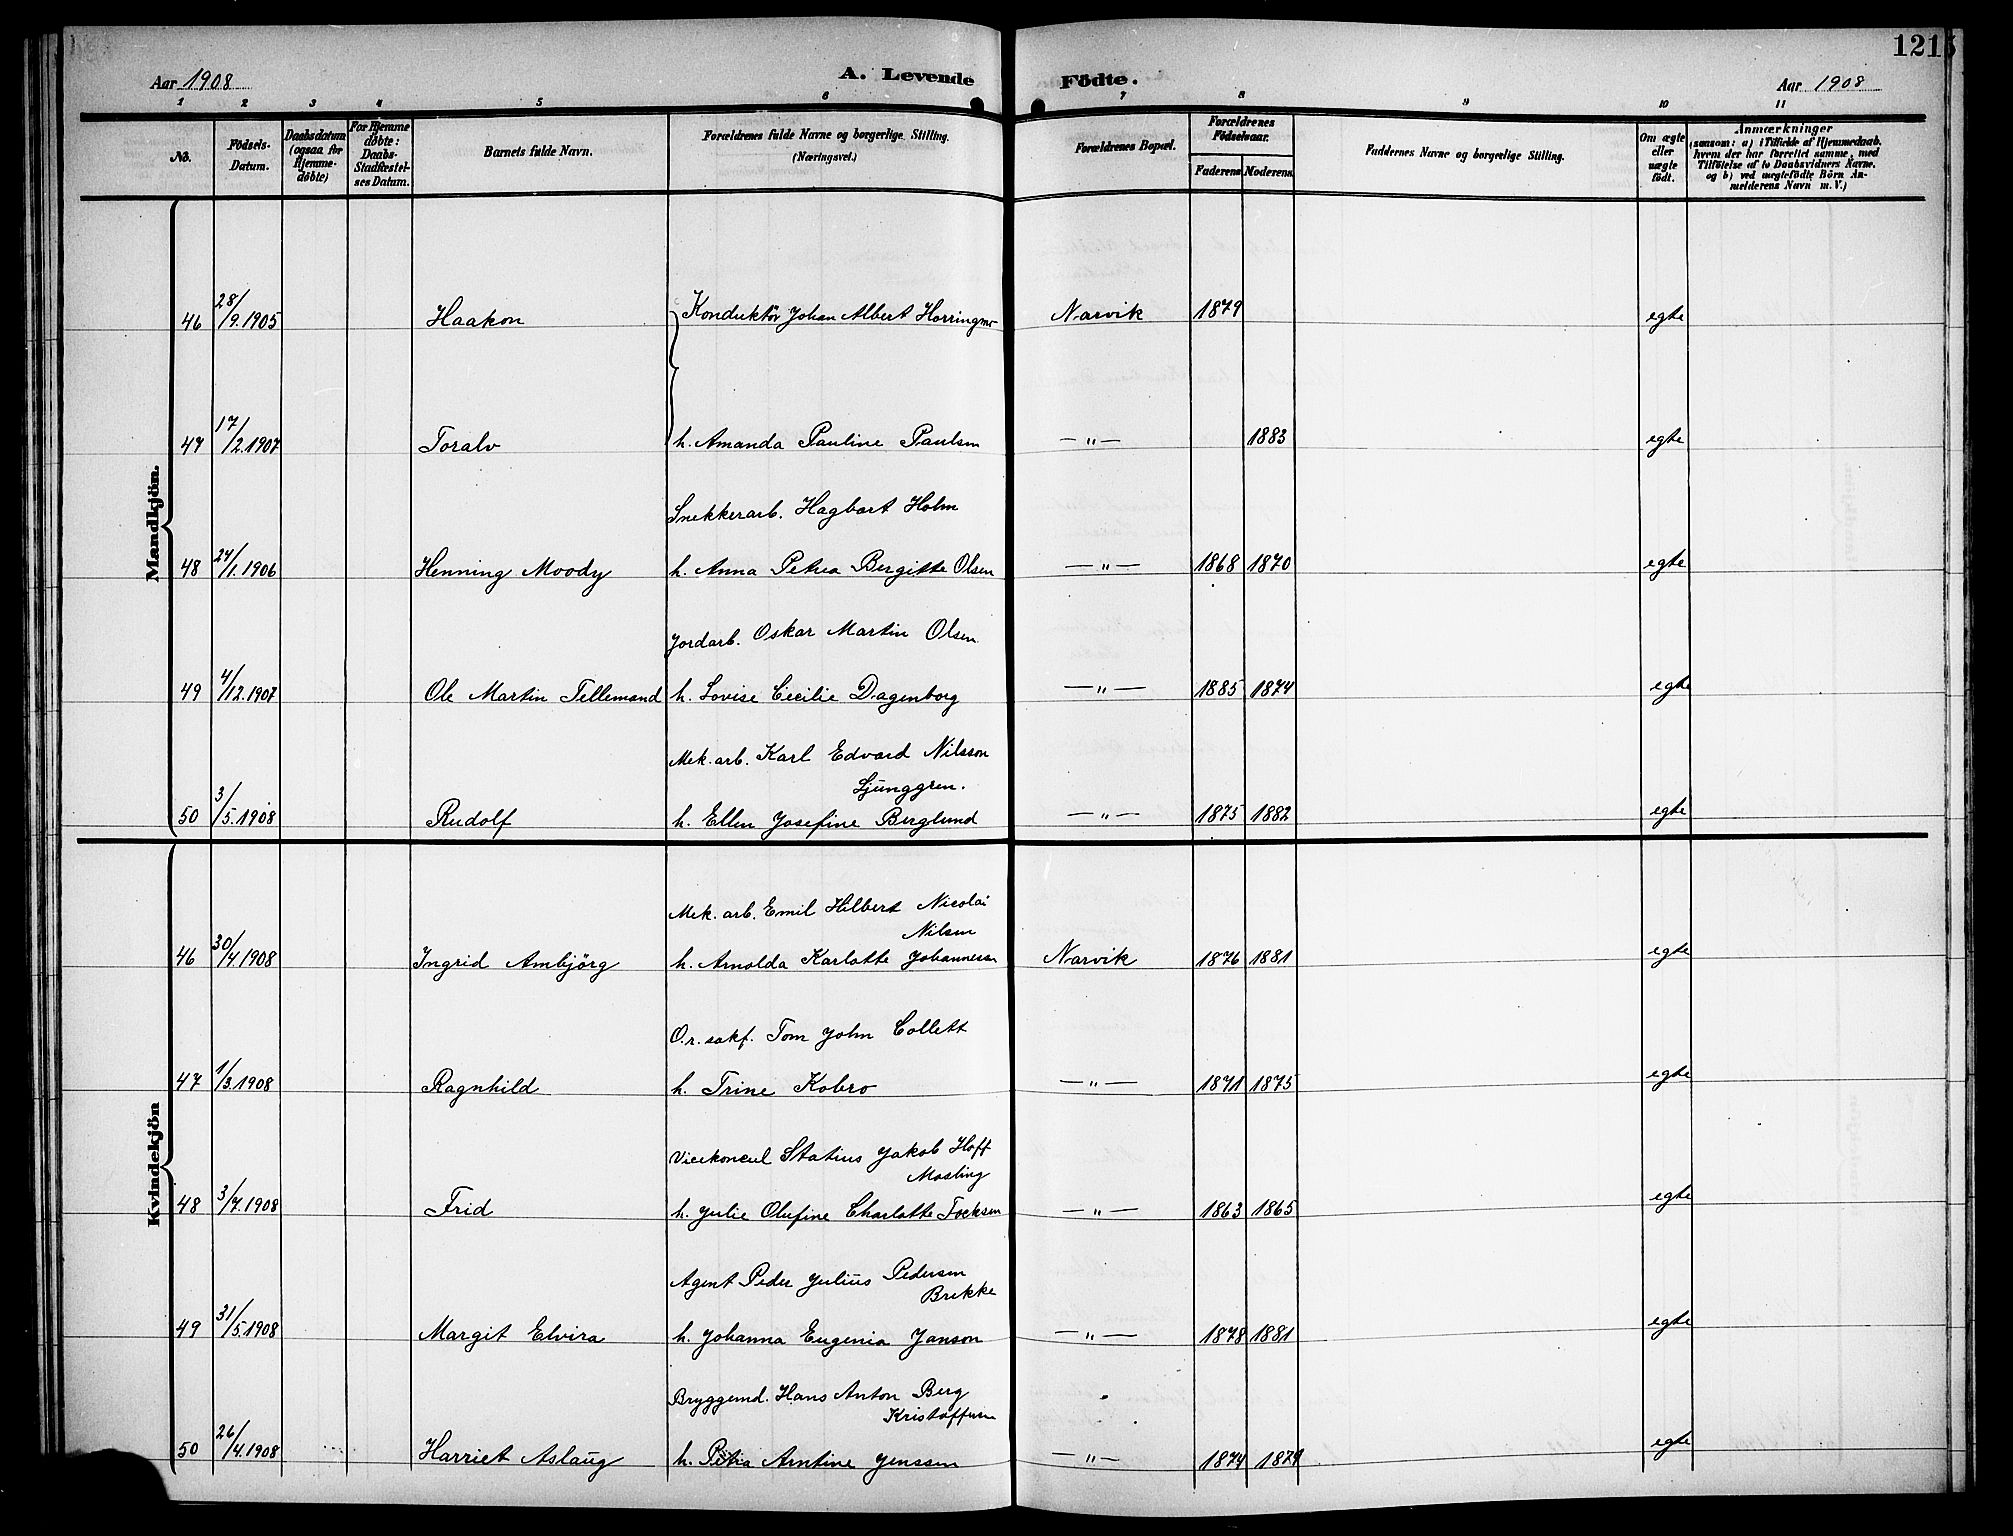 1215
Aar 1908 A. Levende Födte. Aar 1908
1 2 3 4 5 6 7 8 9 10 11
No. Födsels-Datum. Daabsdatum (ogsaa for Hjemme-döbte) For Hjemme döbte: Daabs-Stadfæstel-ses Datum. Barnets fulde Navn. Forældrenes fulde Navne og borgerlige Stilling. (Næringsvei.) Forældrenes Bopæl. Forældrenes Födselsaar. Faderens Moderens Faddernes Navne og borgerlige Stilling. Om ægte eller uægte födt. Anmærkninger (saasom: a) i Tilfælde af Hjemmedaab. hvem der har forrettet samme, med Tilföielse af to Daabsvidners Navne. og b) ved uægtefödte Börn An-melderens Navn m. V.)
Mandkjön.
46 28/9.1905 Haakon Konduktör Johan Albert Horringmo Narvik 1879 egte
47 17/2.1907 Toralv h. Amanda Pauline Paulsen —"— 1883 egte
Snekkerarb. Hagbart Holm
48 24/1.1906 Henning Moody h. Anna Petrea Bergitte Olsen —"— 1868 1870 egte
Jordarb. Oskar Martin Olsen
49 4/12.1907 Ole Martin Tellemand h. Lovise Cecilie Dagenborg —"— 1885 1874 egte
Mek. arb. Karl Edvard Nilsson
Ljunggren.
50 3/5.1908 Rudolf h. Ellen Josefine Berglund —"— 1875 1882 egte
Kvindekjön
Mek. arb. Emil Hilbert Nicolai
Nilsen
46 30/4.1908 Ingrid Ambjörg h. Arnolda Karlotte Johannesen Narvik 1876 1881 egte
O.r. sakf. Tom John Collett
47 1/3.1908 Ragnhild h. Trine Kobro —"— 1871 1875 egte
Vicekoncul Statius Jakob Hoff
Mosling
48 3/7.1908 Frid h. Julie Olufine Charlotte Focksen —"— 1863 1865 egte
Agent Peder Julius Pedersen
Brekke
49 31/5.1908 Margit Elvira h. Johanna Eugenia Janson —"— 1878 1881 egte
Bryggemd. Hans Anton Berg
Kristoffersen
50 26/4.1908 Harriet Aslaug h. Petra Arntine Jenssen —"— 1874 1879 egte